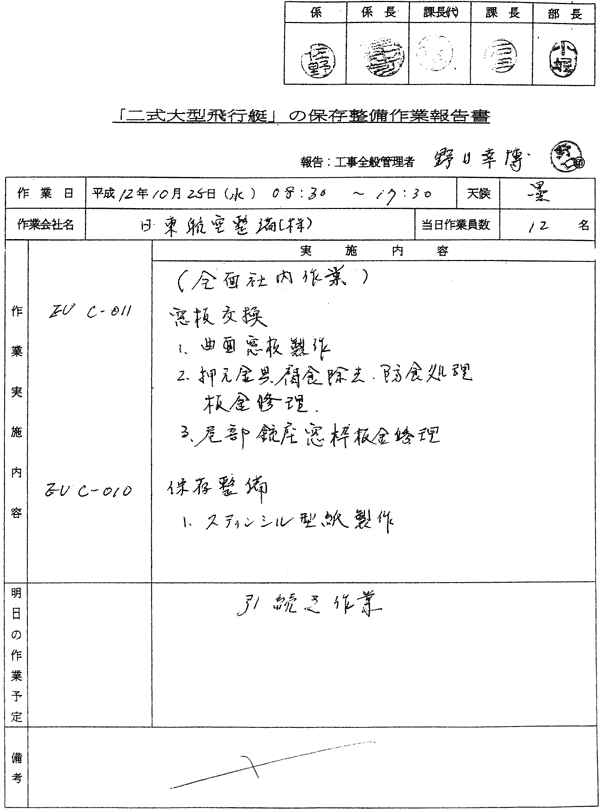 係 係長 課長代 課長 部長
佐野 小堀
「二式大型飛行艇」の保存整備作業報告書
報告:工事全般管理者 野口幸博
作業日 平成12年10月25日(水) 08:30 ~ 17:30 天候 曇
作業会社名 日東航空整備(株) 当日作業員数 12名
作業実施内容
実施内容
(全面社内作業)
EU C-011 窓板交換
1. 曲面窓板製作
2. 押え金具腐食除去.防食処理
板金修理.
3. 尾部銃座窓枠板金修理
EU C-010 保存整備
1. スティンシル型紙製作
明日の作業予定
引続き作業
備考